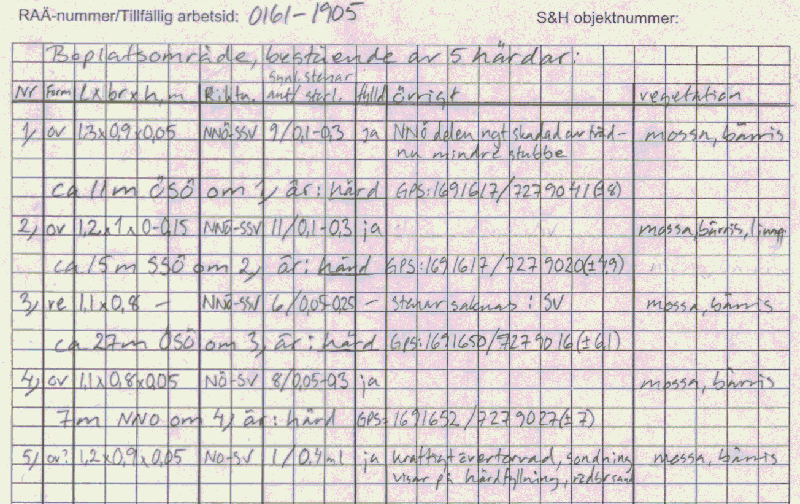 RAÄ-nummer/Tillfällig arbetsid: 0161-1905 S&H objektnummer:
Boplatsområde, bestående av 5 härdar:
Synl. stenar
Nr Form L x br x h, m Riktn. ant/ storl. fylld övrigt vegetation
1, ov 1,3x0,9x0,05 NNÖ-SSV 9/0,1-0,3 ja NNÖ delen ngt skadad av träd- mossa, bärris
nu mindre stubbe
ca 11m ÖSÖ om 1, är: härd GPS: 1691617/7279041(±8)
2, ov 1,2x1x0-0,15 NNÖ-SSV 11/0,1-0,3 ja mossa, bärris, ljung
ca 15m SSÖ om 2, är: härd GPS: 1691617/7279020(±4,9)
3, re 1,1x0,8 - NNÖ-SSV 6/0,05-0,25 - stenar saknas i SV mossa, bärris
ca 27m ÖSÖ om 3, är: härd GPS: 1691650/7279016(±6,1)
4, ov 1,1x0,8x0,05 NÖ-SV 8/0,05-0,3 ja mossa, bärris
7m NNO om 4, är: härd GPS: 1691652/7279027(±7)
5, ov? 1,2x0,9x0,05 NO-SV 1/0,4 ja kraftigt övertorvad, sondning mossa, bärris
visar på härdfyllning,